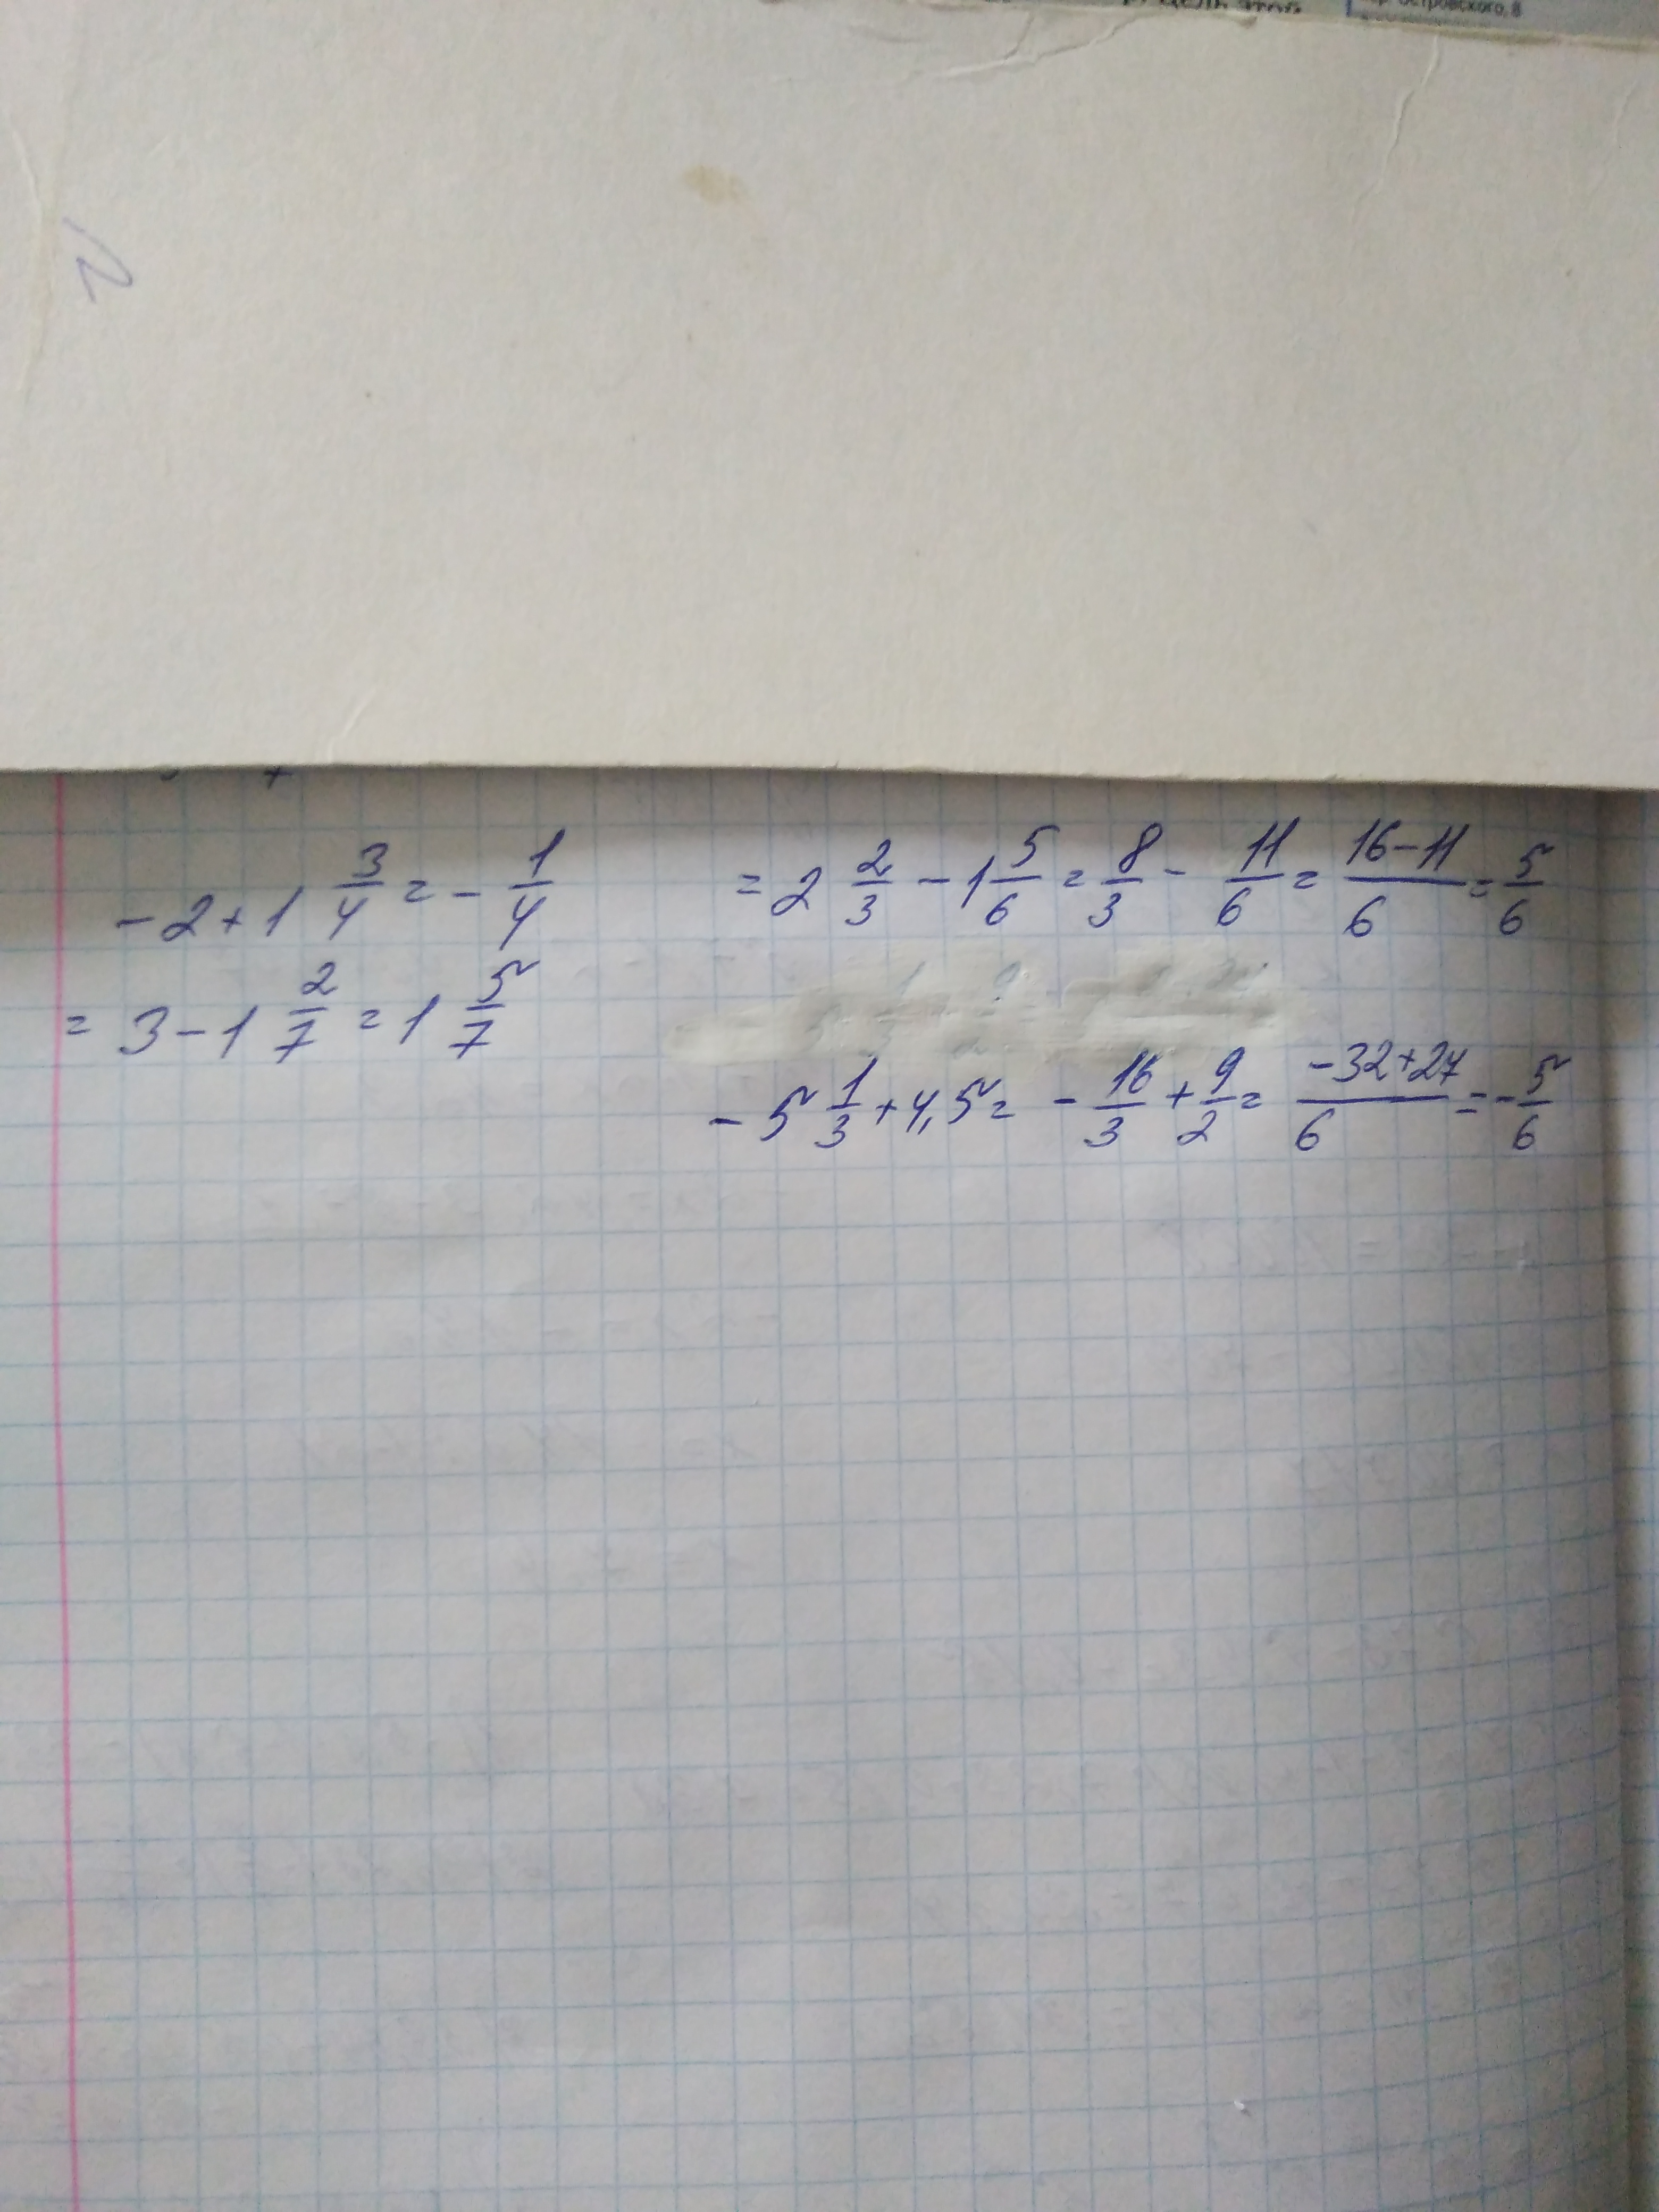 цель этой
Островского, 8
2
-2+1 3/4 = - 1/4
= 3-1 2/7 = 1 5/7
= 2 2/3 - 1 5/6 = 8/3 - 11/6 = 16-11/6 = 5/6
- 5 1/3 + 4,5 = - 16/3 + 9/2 = -32+27/6 = - 5/6